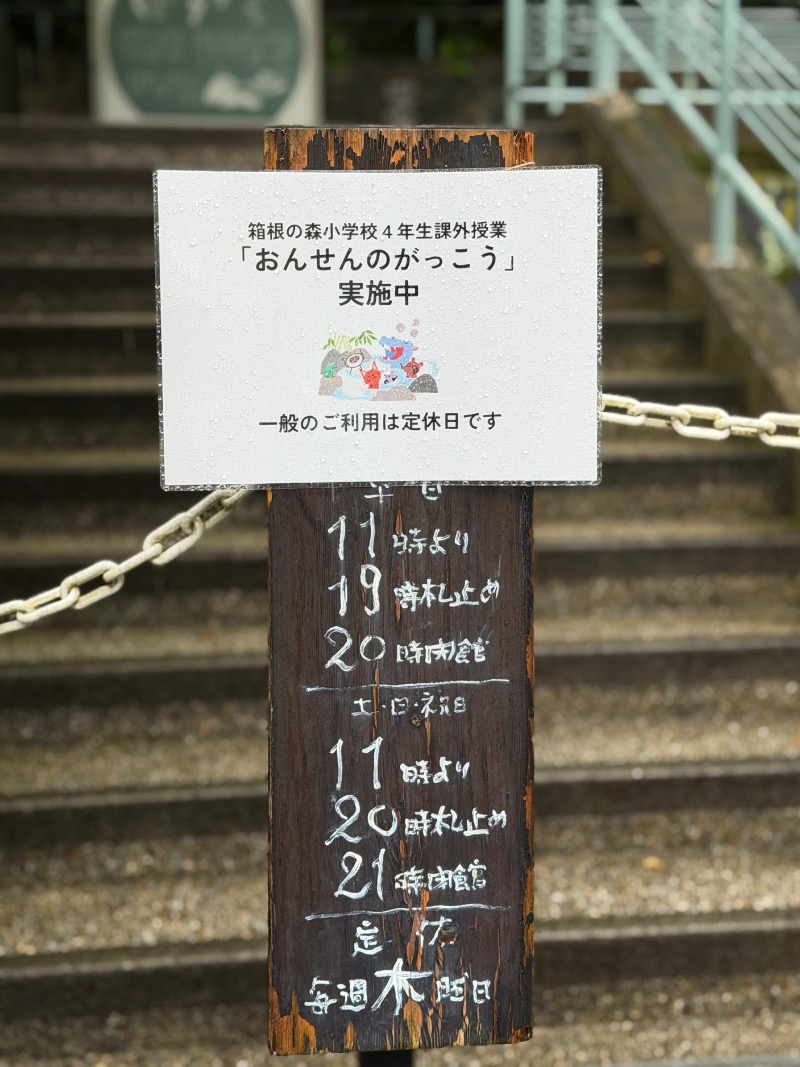 箱根の森小学校4年生課外授業
「おんせんのがっこう」
実施中
一般のご利用は定休日です
平日
11時より
19時札止め
20時閉館
土・日・祝日
11時より
20時札止め
21時閉館
定休
毎週木曜日